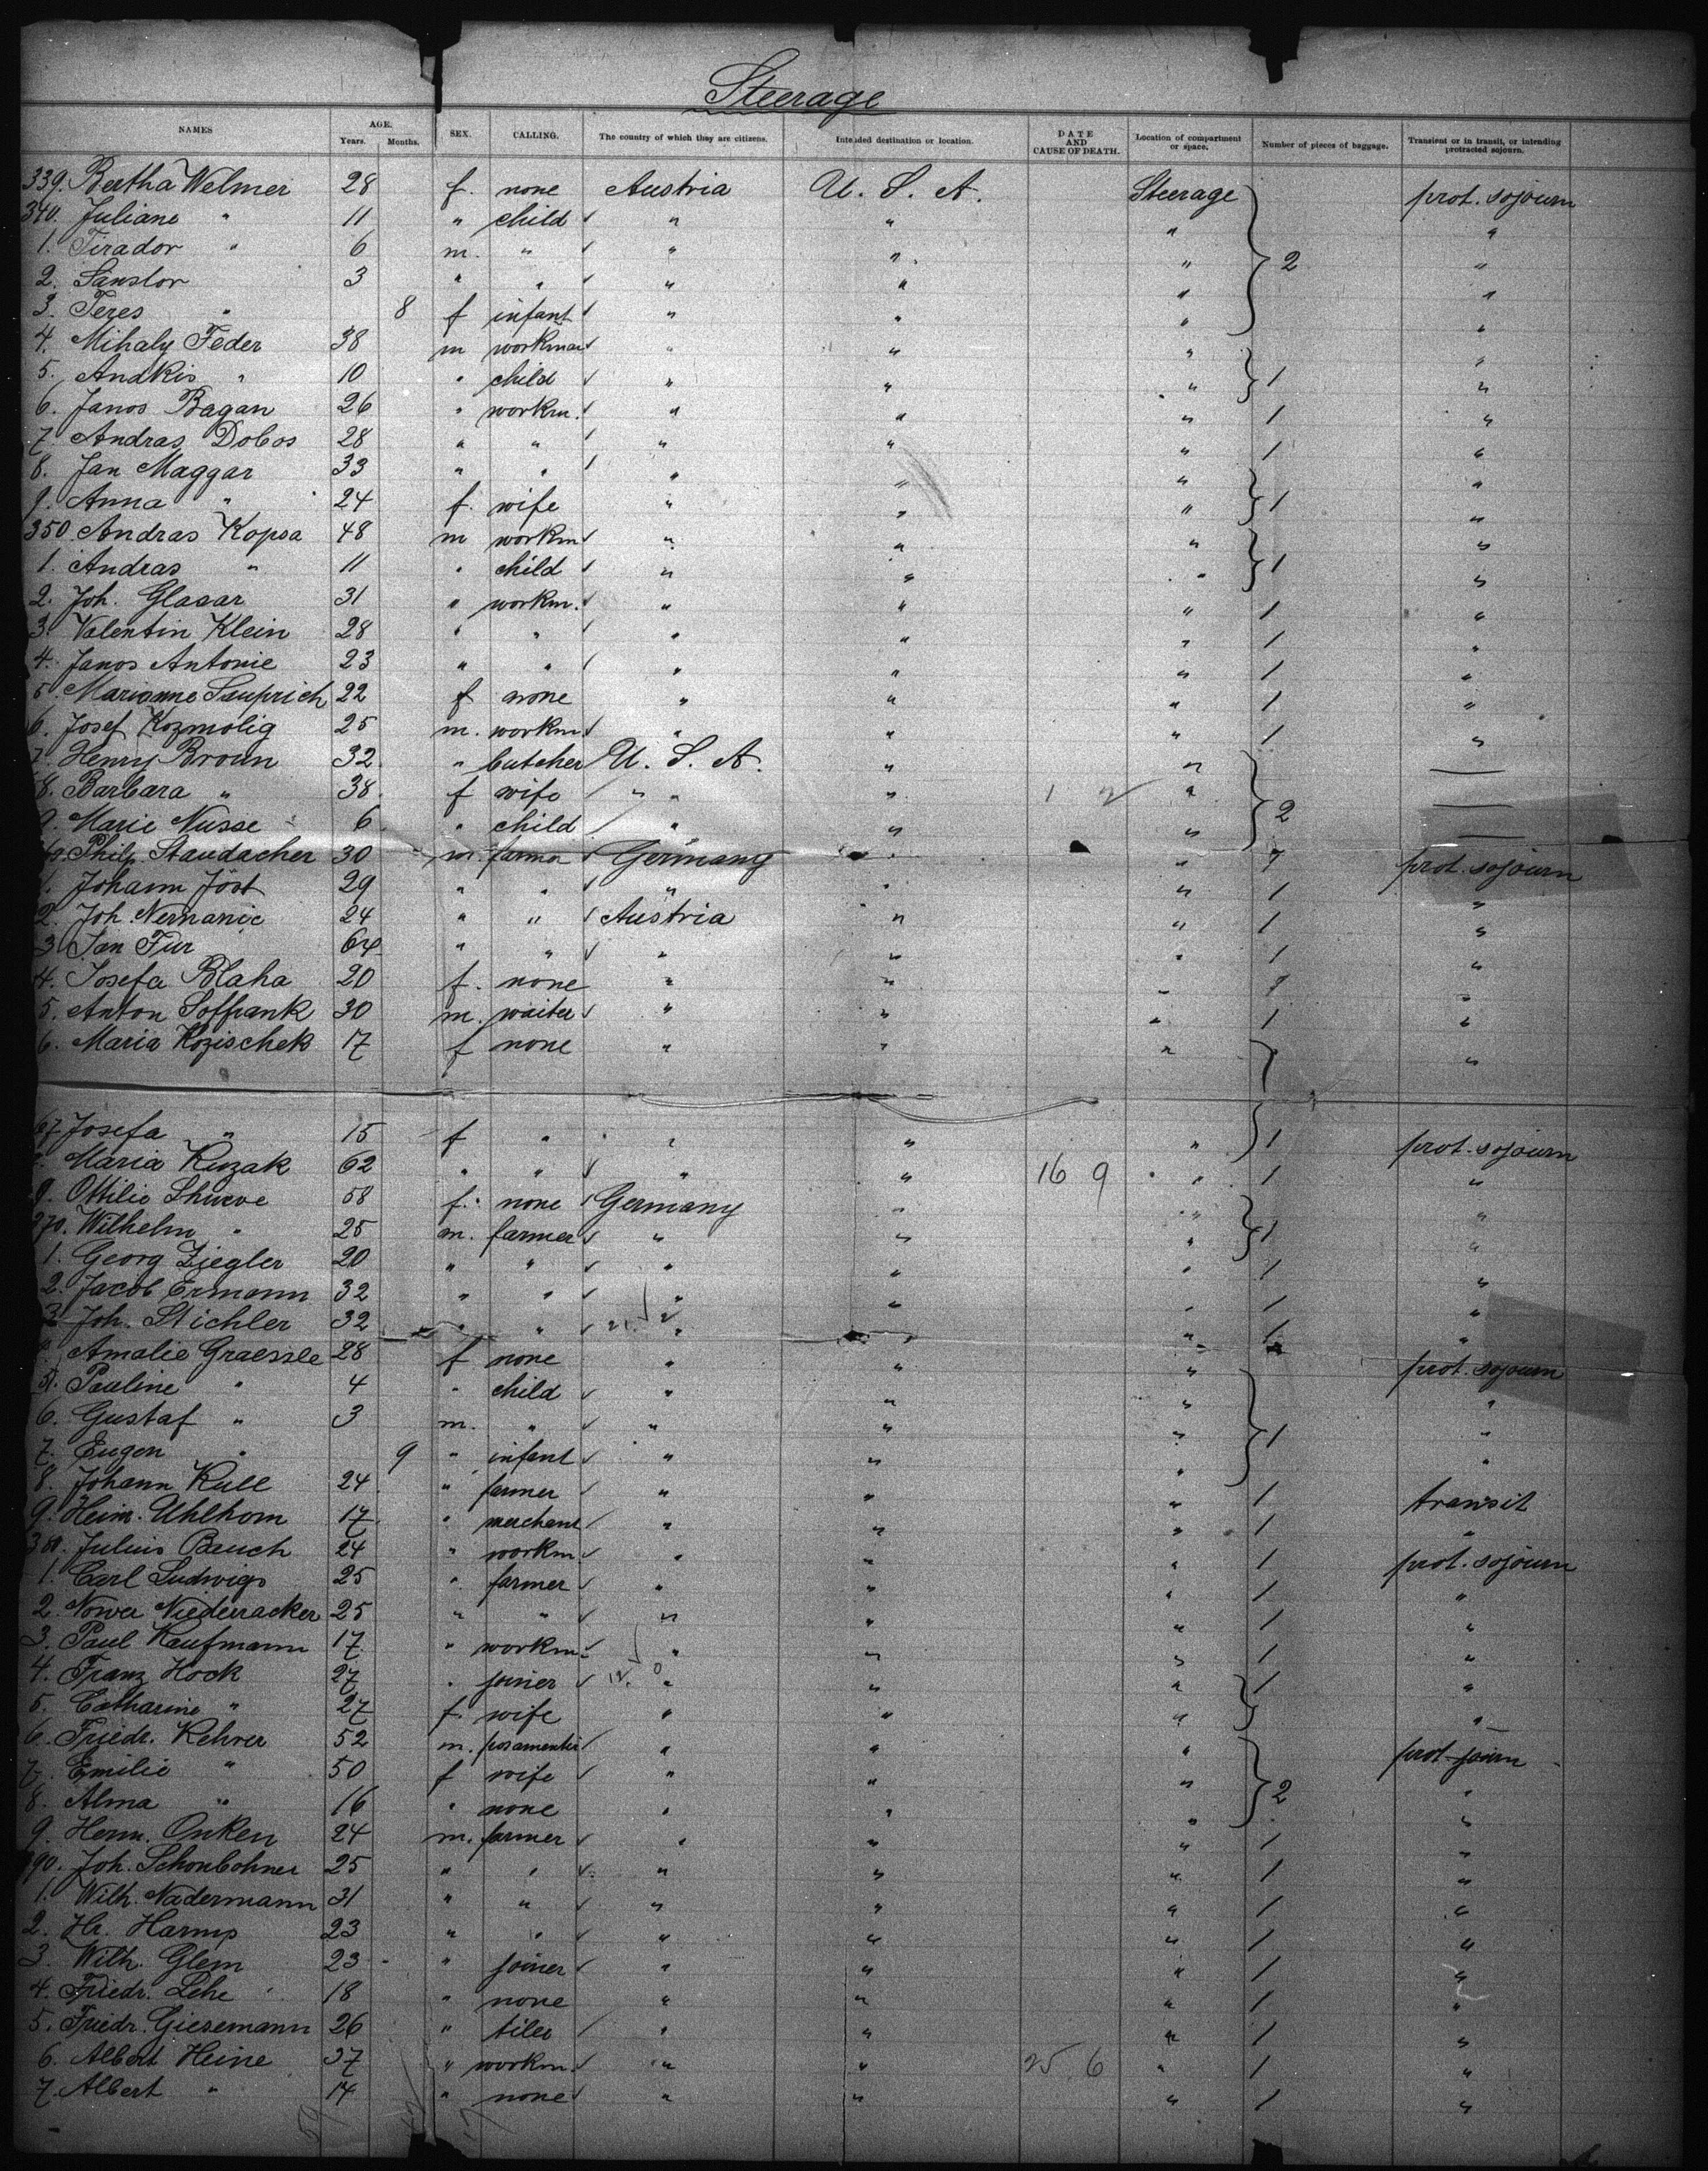 Steerage
NAMES AGE. Years. Months. SEX. CALLING. The country of which they are citizens. Intended destination or location. DATE AND CAUSE OF DEATH. Location of compartment or space. Number of pieces of baggage. Transient or in transit, or intending protracted sojourn.
339. Bertha Welmer 28 f. none Austria U. S. A. Steerage prot. sojourn
340. Juliane " 11 " child " " " "
1. Tirador " 6 m. " " " " 2 "
2. Sanstor 3 " " " " " "
3. Teres " 8 f infant " " " "
4. Mihaly Feder 38 m workman " " " "
5. Andkis " 10 " child " " " 1 "
6. Janos Bagan 26 " workm. " " " 1 "
7. Andras Dobos 28 " " " " " 1 "
8. Jan Maggar 33 " " " " " "
9. Anna " 24 f. wife " " " 1 "
350. Andras Kopsa 48 m workm " " " "
1. Andras " 11 " child " " " 1 "
2. Joh. Glasar 31 " workm. " " " 1 "
3. Valentin Klein 28 " " " " " 1 "
4. Janos Antonie 23 " " " " " 1 "
5. Marianne Sauprich 22 f none " " " 1 "
6. Josef Kozmolig 25 m. workm " " " 1 "
7. Henry Broun 32 " butcher U. S. A. " "
8. Barbara " 38 f wife " " " 1 2 " 2
9. Marie Nusse 6 " child " " "
60. Philp. Staudacher 30 m. farmer Germany " " 7 prot. sojourn
1. Johann Jöst 29 " " " " " 1 "
2. Joh. Nernanic 24 " " Austria " " 1 "
3. Jan Fur 64 " " " " " 1 "
4. Josefa Blaha 20 f. none " " " 1 "
5. Anton Soffrank 30 m. waiter " " " 1 "
6. Maria Kozischek 17 f none " " " "
67. Josefa " 15 f " " " " 1 prot. sojourn
8. Maria Kuzak 62 " " " " 16 9 " 1 "
9. Ottilie Shueve 58 f. none Germany " " "
370. Wilhelm " 25 m. farmer " " " 1 "
1. Georg Ziegler 20 " " " " " 1 "
2. Jacob Ermann 32 " " " " " 1 "
3. Joh. Stichler 32 " " " " " 1 "
4. Amalie Graessle 28 f none " " " prot. sojourn
5. Pauline " 4 " child " " " "
6. Gustaf " 3 m. " " " " 1 "
7. Eugen " 9 " infant " " " "
8. Johann Kull 24 " farmer " " " 1 transit
9. Heinr. Uhlhorn 17 " merchant " " " 1 "
380. Julius Bauch 24 " workm. " " " 1 prot. sojourn
1. Carl Ludwigs 25 " farmer " " " 1 "
2. Niederacker 25 " " " " " 1 "
3. Paul Kaufmann 17 " workm. " " " 1 "
4. Franz Hock 27 " joiner " " " 1 "
5. Catharine " 27 f. wife " " " "
6. Friedr. Kehrer 52 m. posamentir " " " prot. journ
7. Emilie " 50 f wife " " " 2 "
8. Alma " 16 " none " " " "
9. Herm. Onken 24 m. farmer " " " 1 "
390. Joh. Schonbohner 25 " " " " " 1 "
1. Wilh. Nadermann 31 " " " " " 1 "
2. Hr. Harms 23 " " " " " 1 "
3. Wilh. Glem 23 " joiner " " " 1 "
4. Friedr. Lehe 18 " none " " " 1 "
5. Friedr. Giesemann 26 " tiler " " " 1 "
6. Albert Heine 37 " workm. " " 25 6 " 1 "
7. Albert " 14 " none " " " 1 "